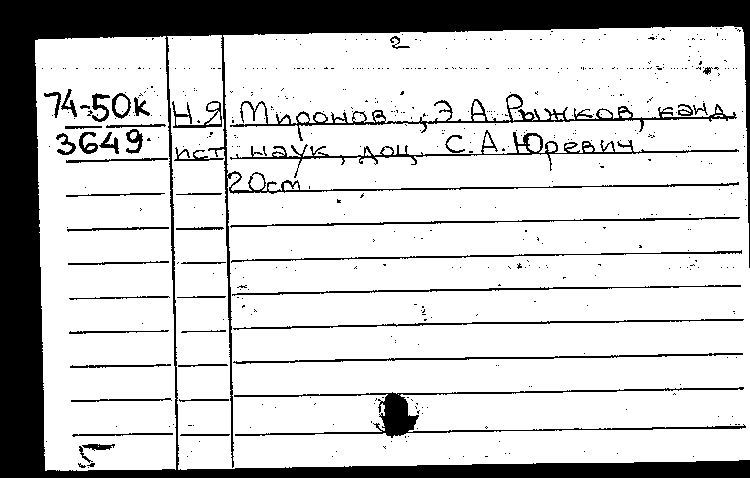 2
74-50к Н.Я. Миронов, Э.А. Рыжков, канд.
3649 ист. наук, доц. С.А. Юревич.
20см.
5